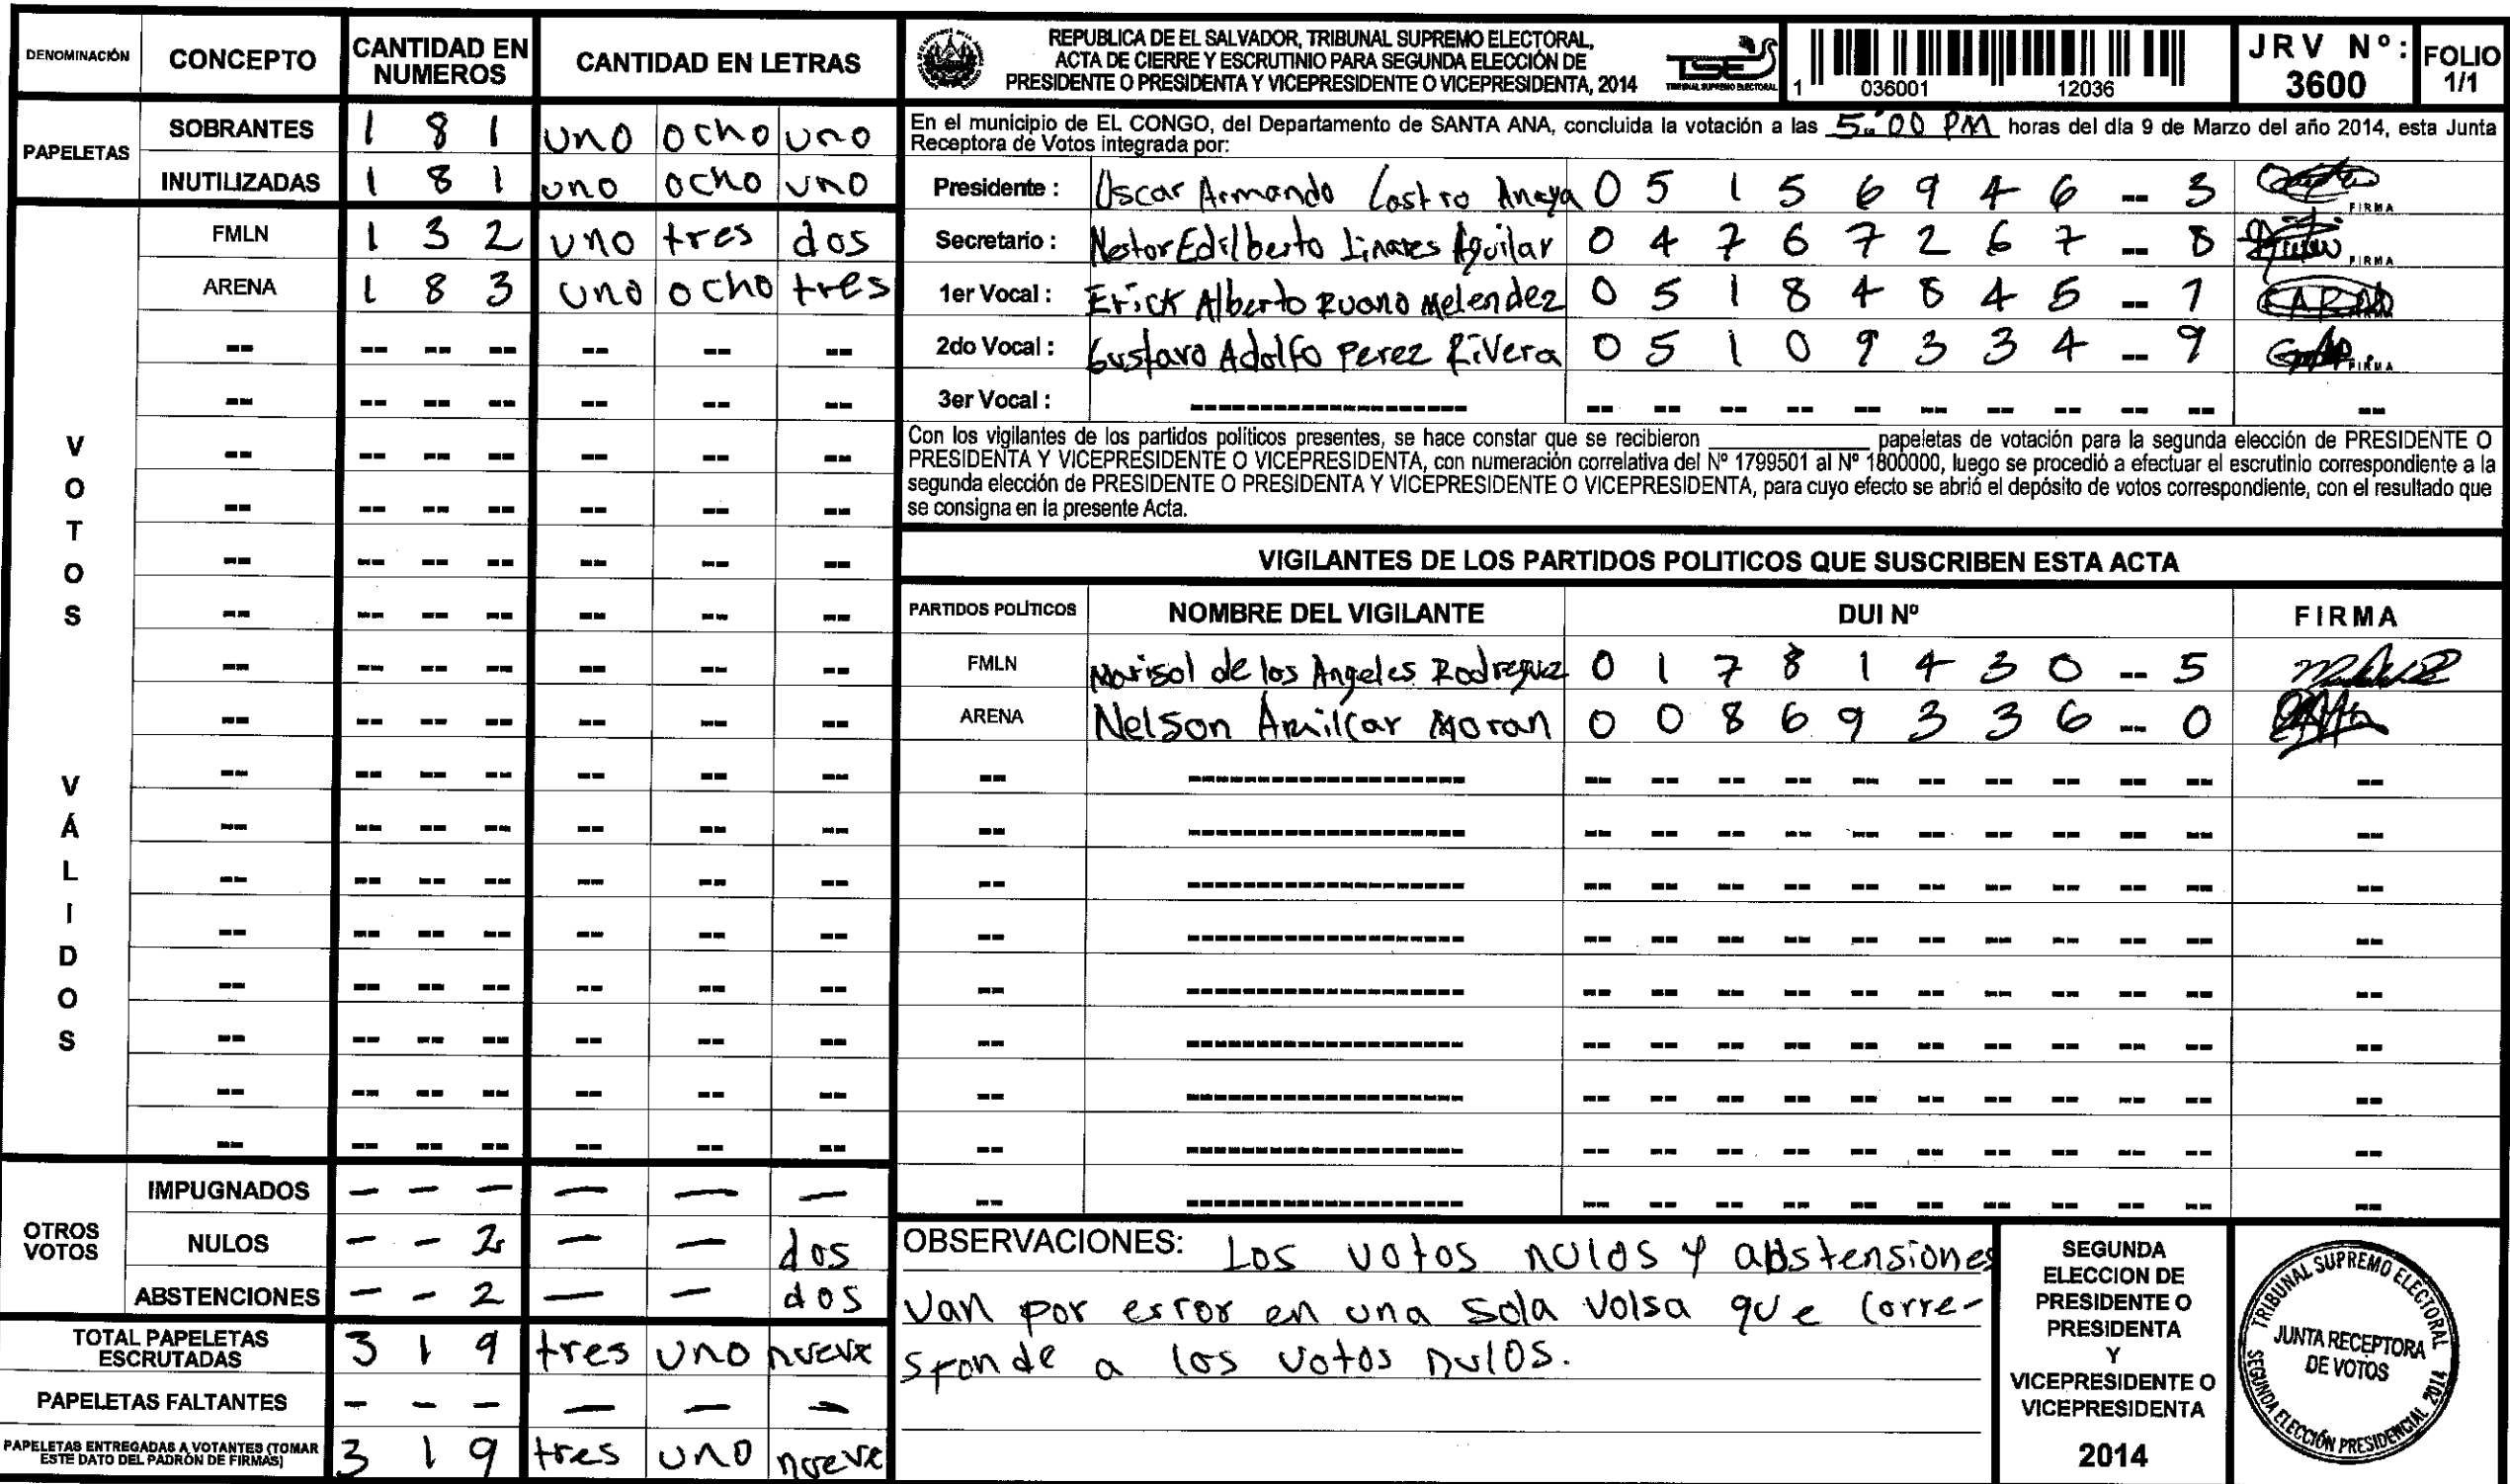 DENOMINACIÓN CONCEPTO CANTIDAD EN NUMEROS CANTIDAD EN LETRAS
PAPELETAS
SOBRANTES 1 8 1 uno ocho uno
INUTILIZADAS 1 8 1 uno ocho uno
VOTOS VÁLIDOS
FMLN 1 3 2 uno tres dos
ARENA 1 8 3 uno ocho tres
OTROS VOTOS
IMPUGNADOS — — — — — —
NULOS — — 2 — — dos
ABSTENCIONES — — 2 — — dos
TOTAL PAPELETAS ESCRUTADAS 3 1 9 tres uno nueve
PAPELETAS FALTANTES — — — — — —
PAPELETAS ENTREGADAS A VOTANTES (TOMAR ESTE DATO DEL PADRÓN DE FIRMAS) 3 1 9 tres uno nueve
REPUBLICA DE EL SALVADOR, TRIBUNAL SUPREMO ELECTORAL,
ACTA DE CIERRE Y ESCRUTINIO PARA SEGUNDA ELECCIÓN DE
PRESIDENTE O PRESIDENTA Y VICEPRESIDENTE O VICEPRESIDENTA, 2014
TSE
TRIBUNAL SUPREMO ELECTORAL
1 036001 12036
JRV Nº: 3600
FOLIO 1/1
En el municipio de EL CONGO, del Departamento de SANTA ANA, concluida la votación a las 5:00 PM horas del día 9 de Marzo del año 2014, esta Junta
Receptora de Votos integrada por:
Presidente : Oscar Armando Castro Anaya 0 5 1 5 6 9 4 6 -- 3 FIRMA
Secretario : Nestor Edilberto Linares Aguilar 0 4 7 6 7 2 6 7 -- 8 FIRMA
1er Vocal : Erick Alberto Ruano Melendez 0 5 1 8 4 8 4 5 -- 1
2do Vocal : Gustavo Adolfo Perez Rivera 0 5 1 0 9 3 3 4 -- 9 FIRMA
3er Vocal :
Con los vigilantes de los partidos políticos presentes, se hace constar que se recibieron ____ papeletas de votación para la segunda elección de PRESIDENTE O
PRESIDENTA Y VICEPRESIDENTE O VICEPRESIDENTA, con numeración correlativa del Nº 1799501 al Nº 1800000, luego se procedió a efectuar el escrutinio correspondiente a la
segunda elección de PRESIDENTE O PRESIDENTA Y VICEPRESIDENTE O VICEPRESIDENTA, para cuyo efecto se abrió el depósito de votos correspondiente, con el resultado que
se consigna en la presente Acta.
VIGILANTES DE LOS PARTIDOS POLITICOS QUE SUSCRIBEN ESTA ACTA
PARTIDOS POLÍTICOS NOMBRE DEL VIGILANTE DUI Nº FIRMA
FMLN Marisol de los Angeles Rodreguez 0 1 7 8 1 4 3 0 -- 5
ARENA Nelson Amilcar Moran 0 0 8 6 9 3 3 6 -- 0
OBSERVACIONES: Los votos nulos y abstensiones
van por error en una sola volsa que corre-
sponde a los votos nulos.
SEGUNDA
ELECCION DE
PRESIDENTE O
PRESIDENTA
Y
VICEPRESIDENTE O
VICEPRESIDENTA
2014
TRIBUNAL SUPREMO ELECTORAL
JUNTA RECEPTORA
DE VOTOS
SEGUNDA ELECCIÓN PRESIDENCIAL 2014